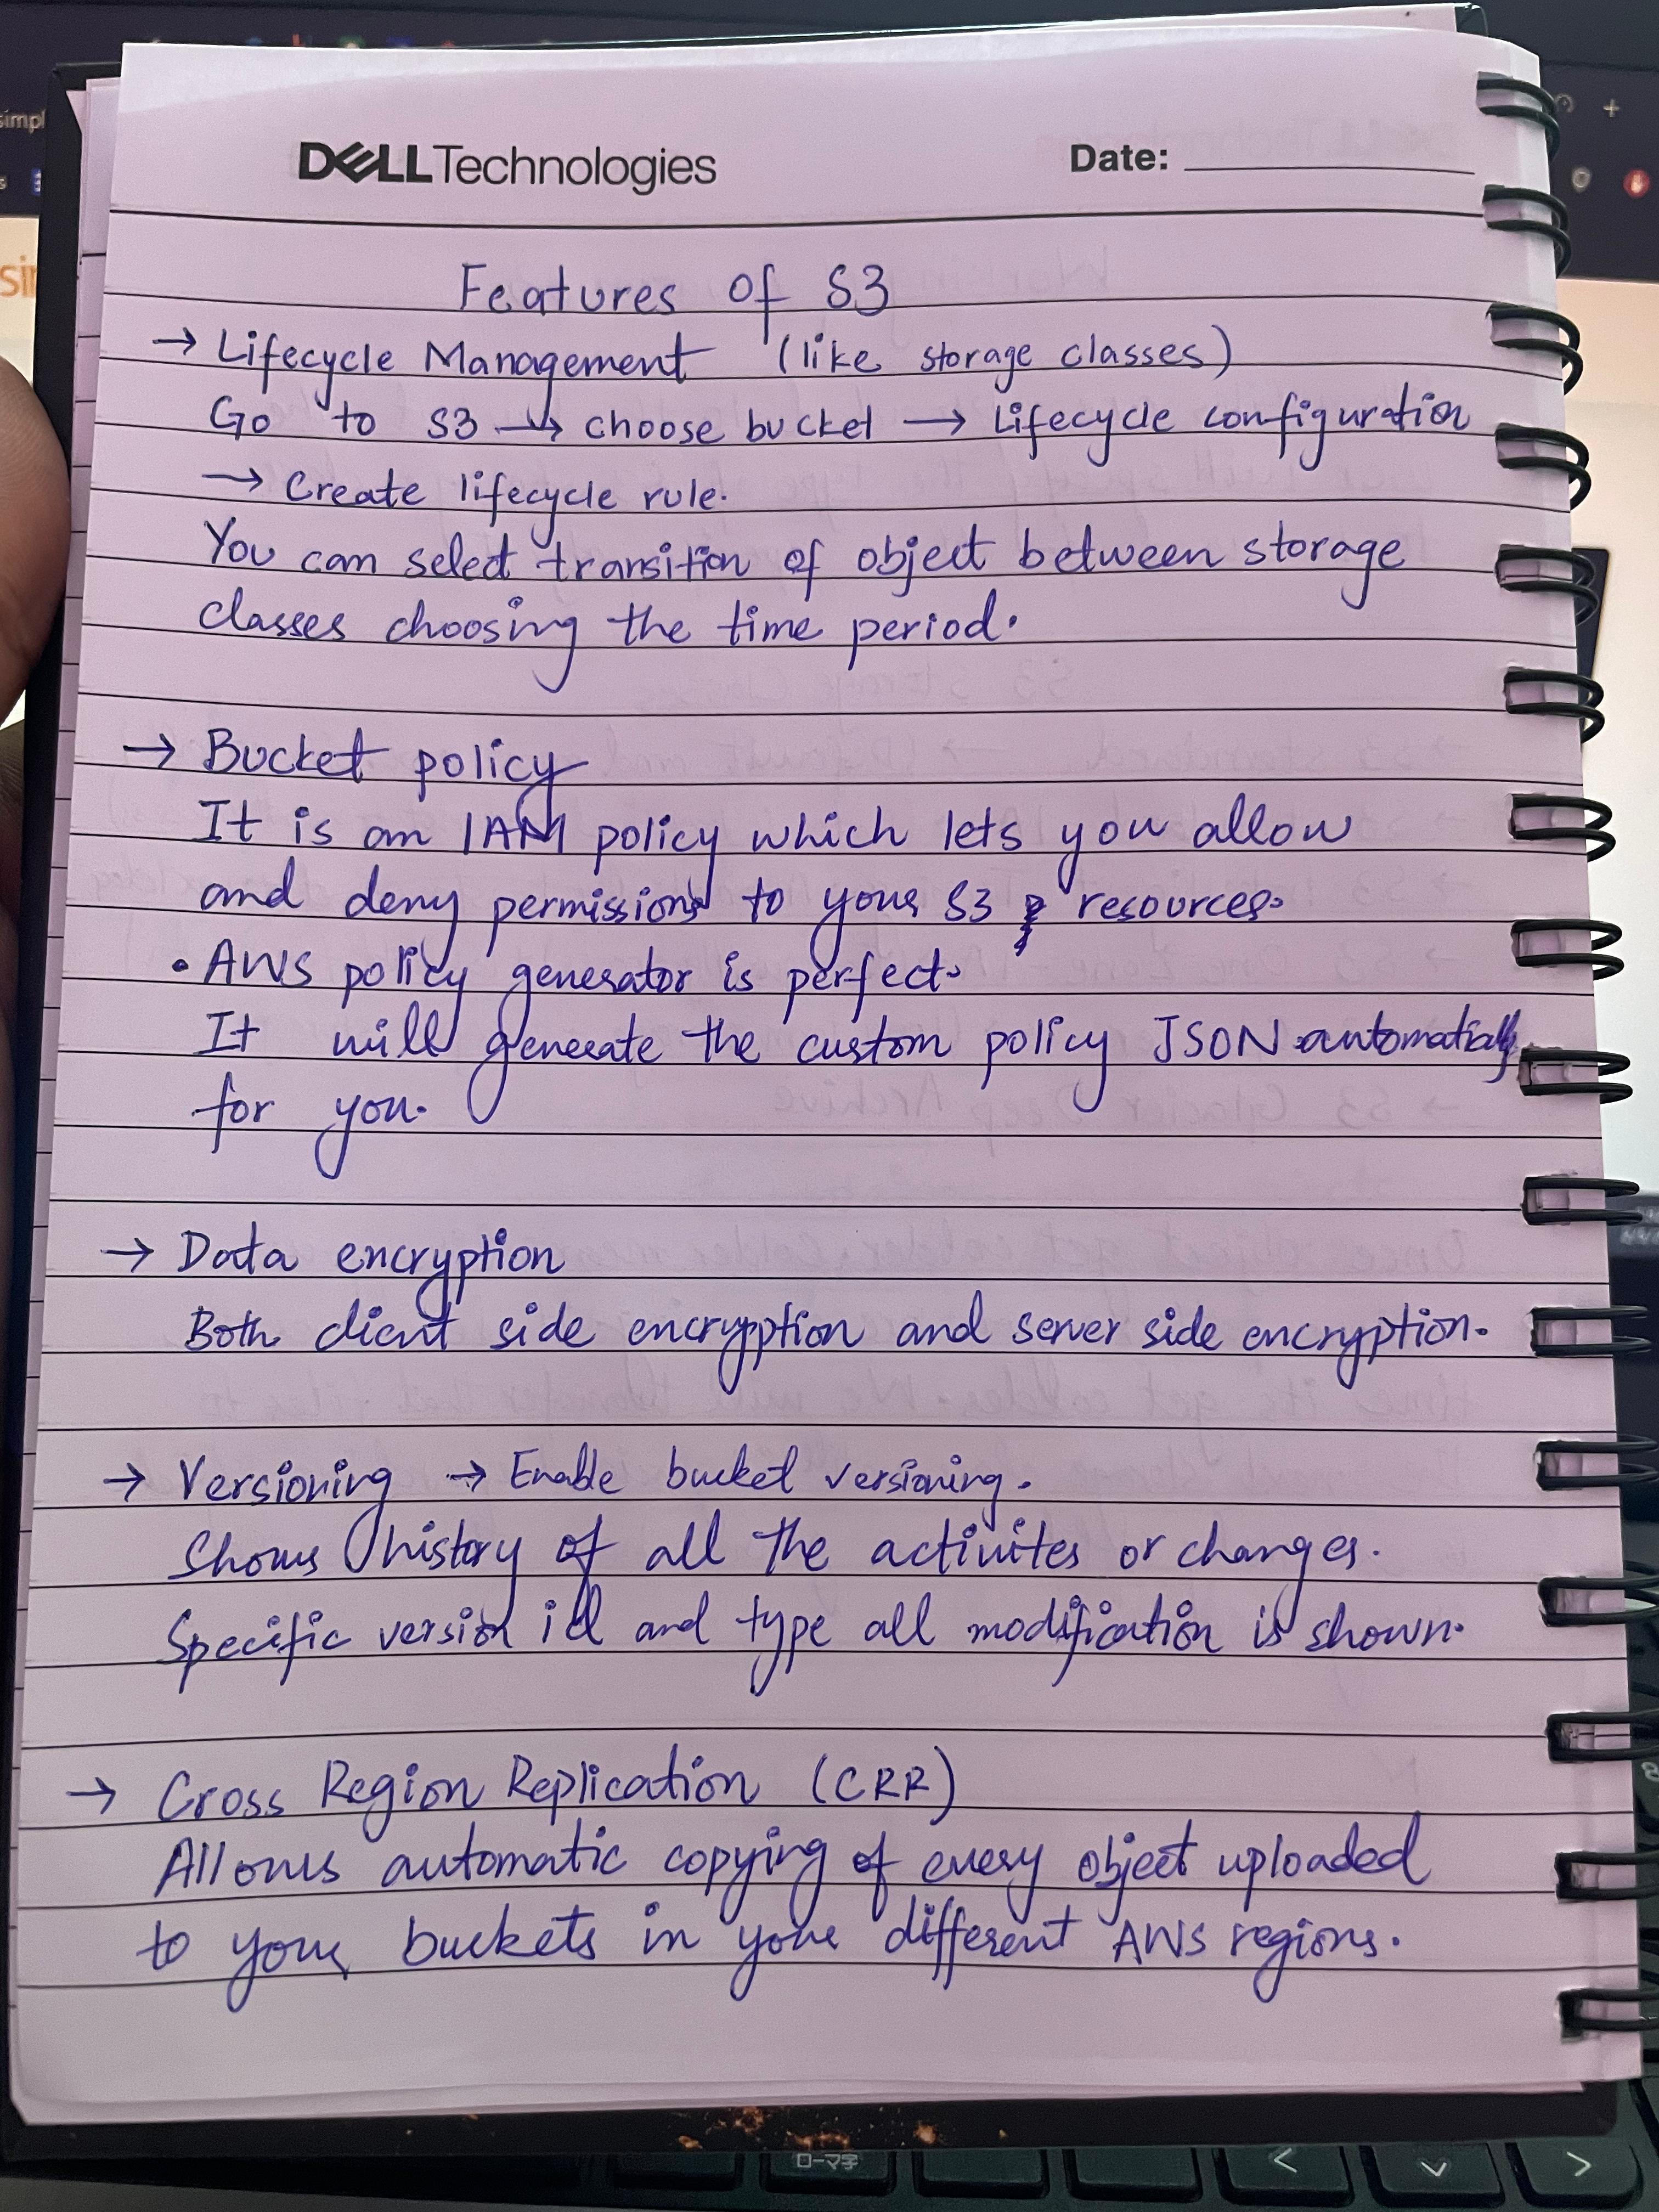 DELL Technologies
Date:
Features of S3
→ Lifecycle Management (like storage classes)
Go to S3 → choose bucket → Lifecycle configuration
→ Create lifecycle rule.
You can select transition of object between storage
classes choosing the time period.
→ Bucket policy
It is an IAM policy which lets you allow
and deny permissions to your S3 resources.
• AWS policy generator is perfect.
It will generate the custom policy JSON automatically
for you.
→ Data encryption
Both client side encryption and server side encryption.
→ Versioning → Enable bucket versioning.
Shows history of all the activites or changes.
Specific version id and type all modification is shown.
→ Cross Region Replication (CRR)
Allows automatic copying of every object uploaded
to your buckets in your different AWS regions.
ローマ字